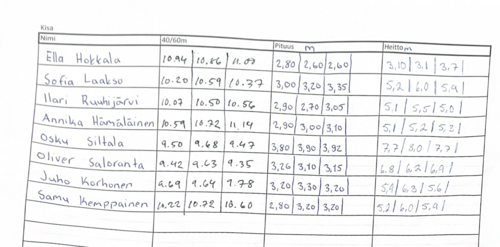 Kisa
Nimi 40/60m Pituus m Heitto m
Ella Hokkala 10.94 10.86 11.00 2,80 2,60 2,60 3,10 3,1 3,7
Sofia Laakso 10.20 10.59 10.37 3,00 3,20 3,35 5,2 6,0 5,9
Ilari Ruuhijärvi 10.07 10.50 10.56 2,90 2,70 3,05 5,1 5,5 5,0
Annika Hämäläinen 10.59 10.72 11.14 2,90 3,00 3,10 5,1 5,2
Osku Siltala 9.50 9.68 9.47 3,80 3,90 3,92 7,7 8,0 7,7
Oliver Saloranta 9.42 9.63 9.35 3,26 3,10 3,15 6,8 6,2 6,9
Juho Korhonen 9.69 9.64 9.78 3,20 3,30 3,20 5,9 6,3 5,6
Samu Kemppainen 10.22 10.72 10.60 2,80 3,20 3,20 5,2 6,0 5,9